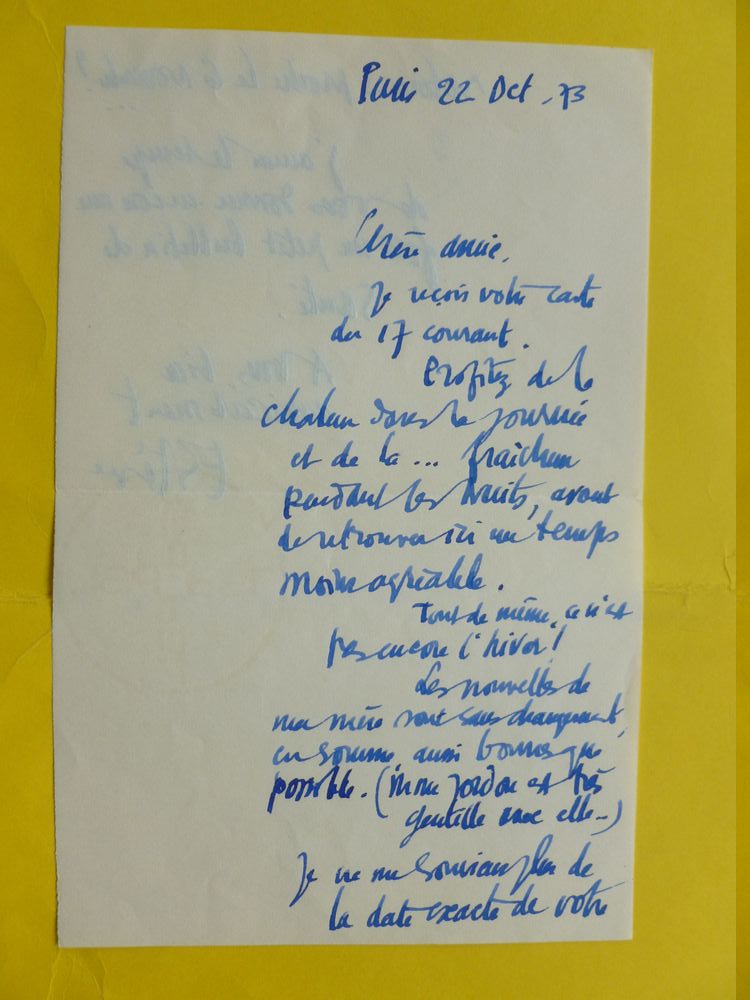 Paris 22 Oct. 73
Chère amie,
Je reçois votre carte
du 17 courant.
Profitez de la
chaleur dans la journée
et de la ... fraîcheur
pendant les nuits, avant
de retrouver ici un temps
moins agréable.
Tout de même, ce n'est
pas encore l'hiver!
Les nouvelles de
ma mère sont sans changement,
en somme, aussi bonnes que
possible. (Mme Jordon est très
gentille avec elle...)
Je ne me souviens plus de
la date exacte de votre